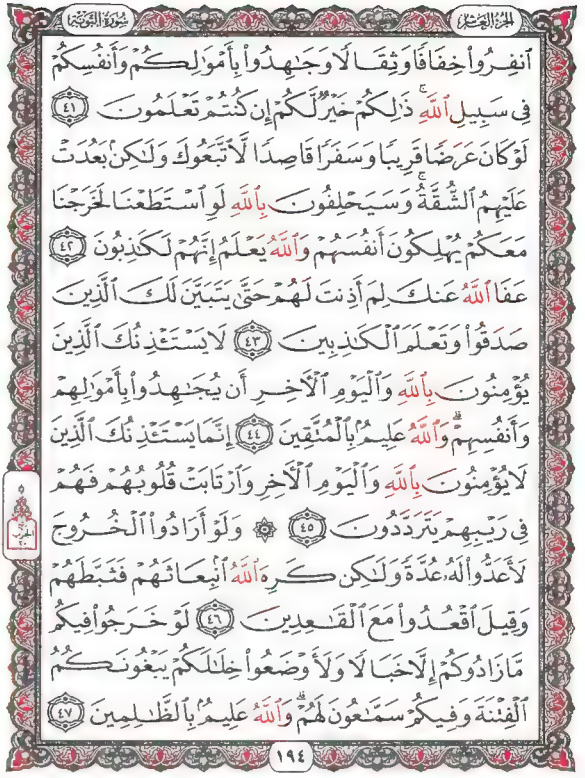 الجزء العاشر
سورة التوبة
ٱنفِرُوا۟ خِفَافًا وَثِقَالًا وَجَٰهِدُوا۟ بِأَمْوَٰلِكُمْ وَأَنفُسِكُمْ
فِى سَبِيلِ ٱللَّهِ ۚ ذَٰلِكُمْ خَيْرٌ لَّكُمْ إِن كُنتُمْ تَعْلَمُونَ ٤١
لَوْ كَانَ عَرَضًا قَرِيبًا وَسَفَرًا قَاصِدًا لَّٱتَّبَعُوكَ وَلَٰكِنۢ بَعُدَتْ
عَلَيْهِمُ ٱلشُّقَّةُ ۚ وَسَيَحْلِفُونَ بِٱللَّهِ لَوِ ٱسْتَطَعْنَا لَخَرَجْنَا
مَعَكُمْ يُهْلِكُونَ أَنفُسَهُمْ وَٱللَّهُ يَعْلَمُ إِنَّهُمْ لَكَٰذِبُونَ ٤٢
عَفَا ٱللَّهُ عَنكَ لِمَ أَذِنتَ لَهُمْ حَتَّىٰ يَتَبَيَّنَ لَكَ ٱلَّذِينَ
صَدَقُوا۟ وَتَعْلَمَ ٱلْكَٰذِبِينَ ٤٣ لَا يَسْتَـْٔذِنُكَ ٱلَّذِينَ
يُؤْمِنُونَ بِٱللَّهِ وَٱلْيَوْمِ ٱلْءَاخِرِ أَن يُجَٰهِدُوا۟ بِأَمْوَٰلِهِمْ
وَأَنفُسِهِمْ ۗ وَٱللَّهُ عَلِيمٌۢ بِٱلْمُتَّقِينَ ٤٤ إِنَّمَا يَسْتَـْٔذِنُكَ ٱلَّذِينَ
لَا يُؤْمِنُونَ بِٱللَّهِ وَٱلْيَوْمِ ٱلْءَاخِرِ وَٱرْتَابَتْ قُلُوبُهُمْ فَهُمْ
فِى رَيْبِهِمْ يَتَرَدَّدُونَ ٤٥ ۞ وَلَوْ أَرَادُوا۟ ٱلْخُرُوجَ
لَأَعَدُّوا۟ لَهُۥ عُدَّةً وَلَٰكِن كَرِهَ ٱللَّهُ ٱنۢبِعَاثَهُمْ فَثَبَّطَهُمْ
وَقِيلَ ٱقْعُدُوا۟ مَعَ ٱلْقَٰعِدِينَ ٤٦ لَوْ خَرَجُوا۟ فِيكُم
مَّا زَادُوكُمْ إِلَّا خَبَالًا وَلَأَوْضَعُوا۟ خِلَٰلَكُمْ يَبْغُونَكُمُ
ٱلْفِتْنَةَ وَفِيكُمْ سَمَّٰعُونَ لَهُمْ ۗ وَٱللَّهُ عَلِيمٌۢ بِٱلظَّٰلِمِينَ ٤٧
١٩٤